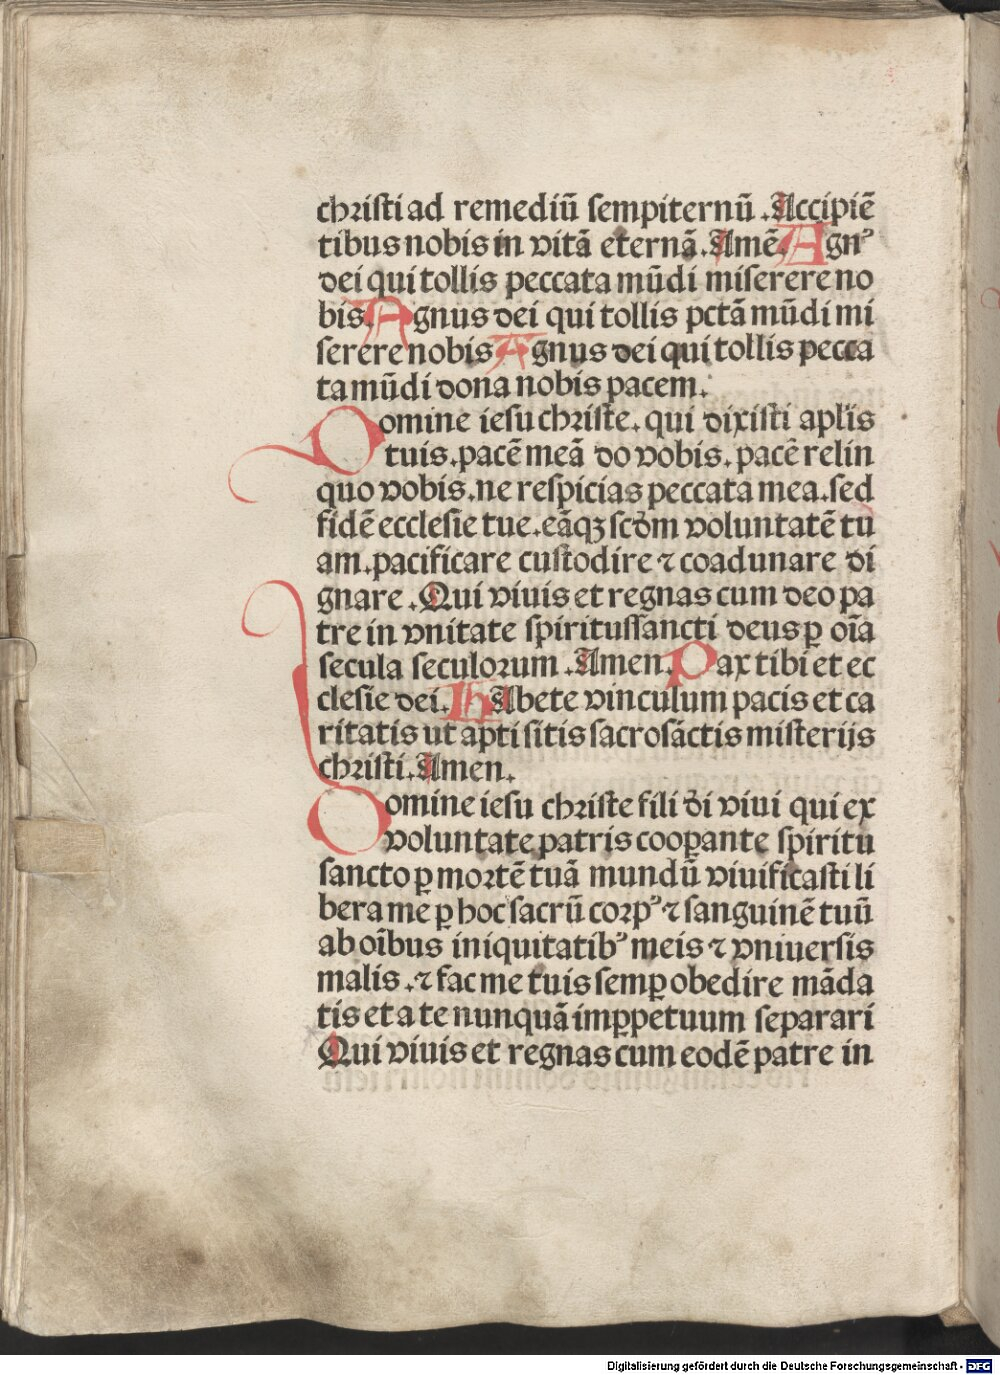 christi ad remediū sempiternū. Accipiē
tibus nobis in vitā eternā. Amē. Agnꝰ
dei qui tollis peccata mūdi miserere no
bis. Agnus dei qui tollis pctā mūdi mi
serere nobis Agnus dei qui tollis pecca
ta mūdi dona nobis pacem.
Domine iesu christe. qui dixisti aplīs
tuis. pacē meā do vobis. pacē relin
quo vobis. ne respicias peccata mea. sed
fidē ecclesie tue. eāqꝫ scd̄m voluntatē tu
am. pacificare custodire ⁊ coadunare di
gnare. Qui viuis et regnas cum deo pa
tre in vnitate spiritussancti deus ꝑ oīa
secula seculoꝛum. Amen. Pax tibi et ec
clesie dei. HAbete vinculum pacis et ca
ritatis ut apti sitis sacrosāctis misterijs
christi. Amen.
Domine iesu christe fili dī viui qui ex
voluntate patris cooꝑante spiritu
sancto ꝑ moꝛtē tuā mundū viuificasti li
bera me ꝑ hoc sacrū coꝛpꝰ ⁊ sanguinē tuū
ab oībus iniquitatibꝰ meis ⁊ vniuersis
malis. ⁊ fac me tuis semꝑ obedire māda
tis et a te nunquā imꝑpetuum separari
Qui viuis et regnas cum eodē patre in
Digitalisierung gefördert durch die Deutsche Forschungsgemeinschaft - DFG